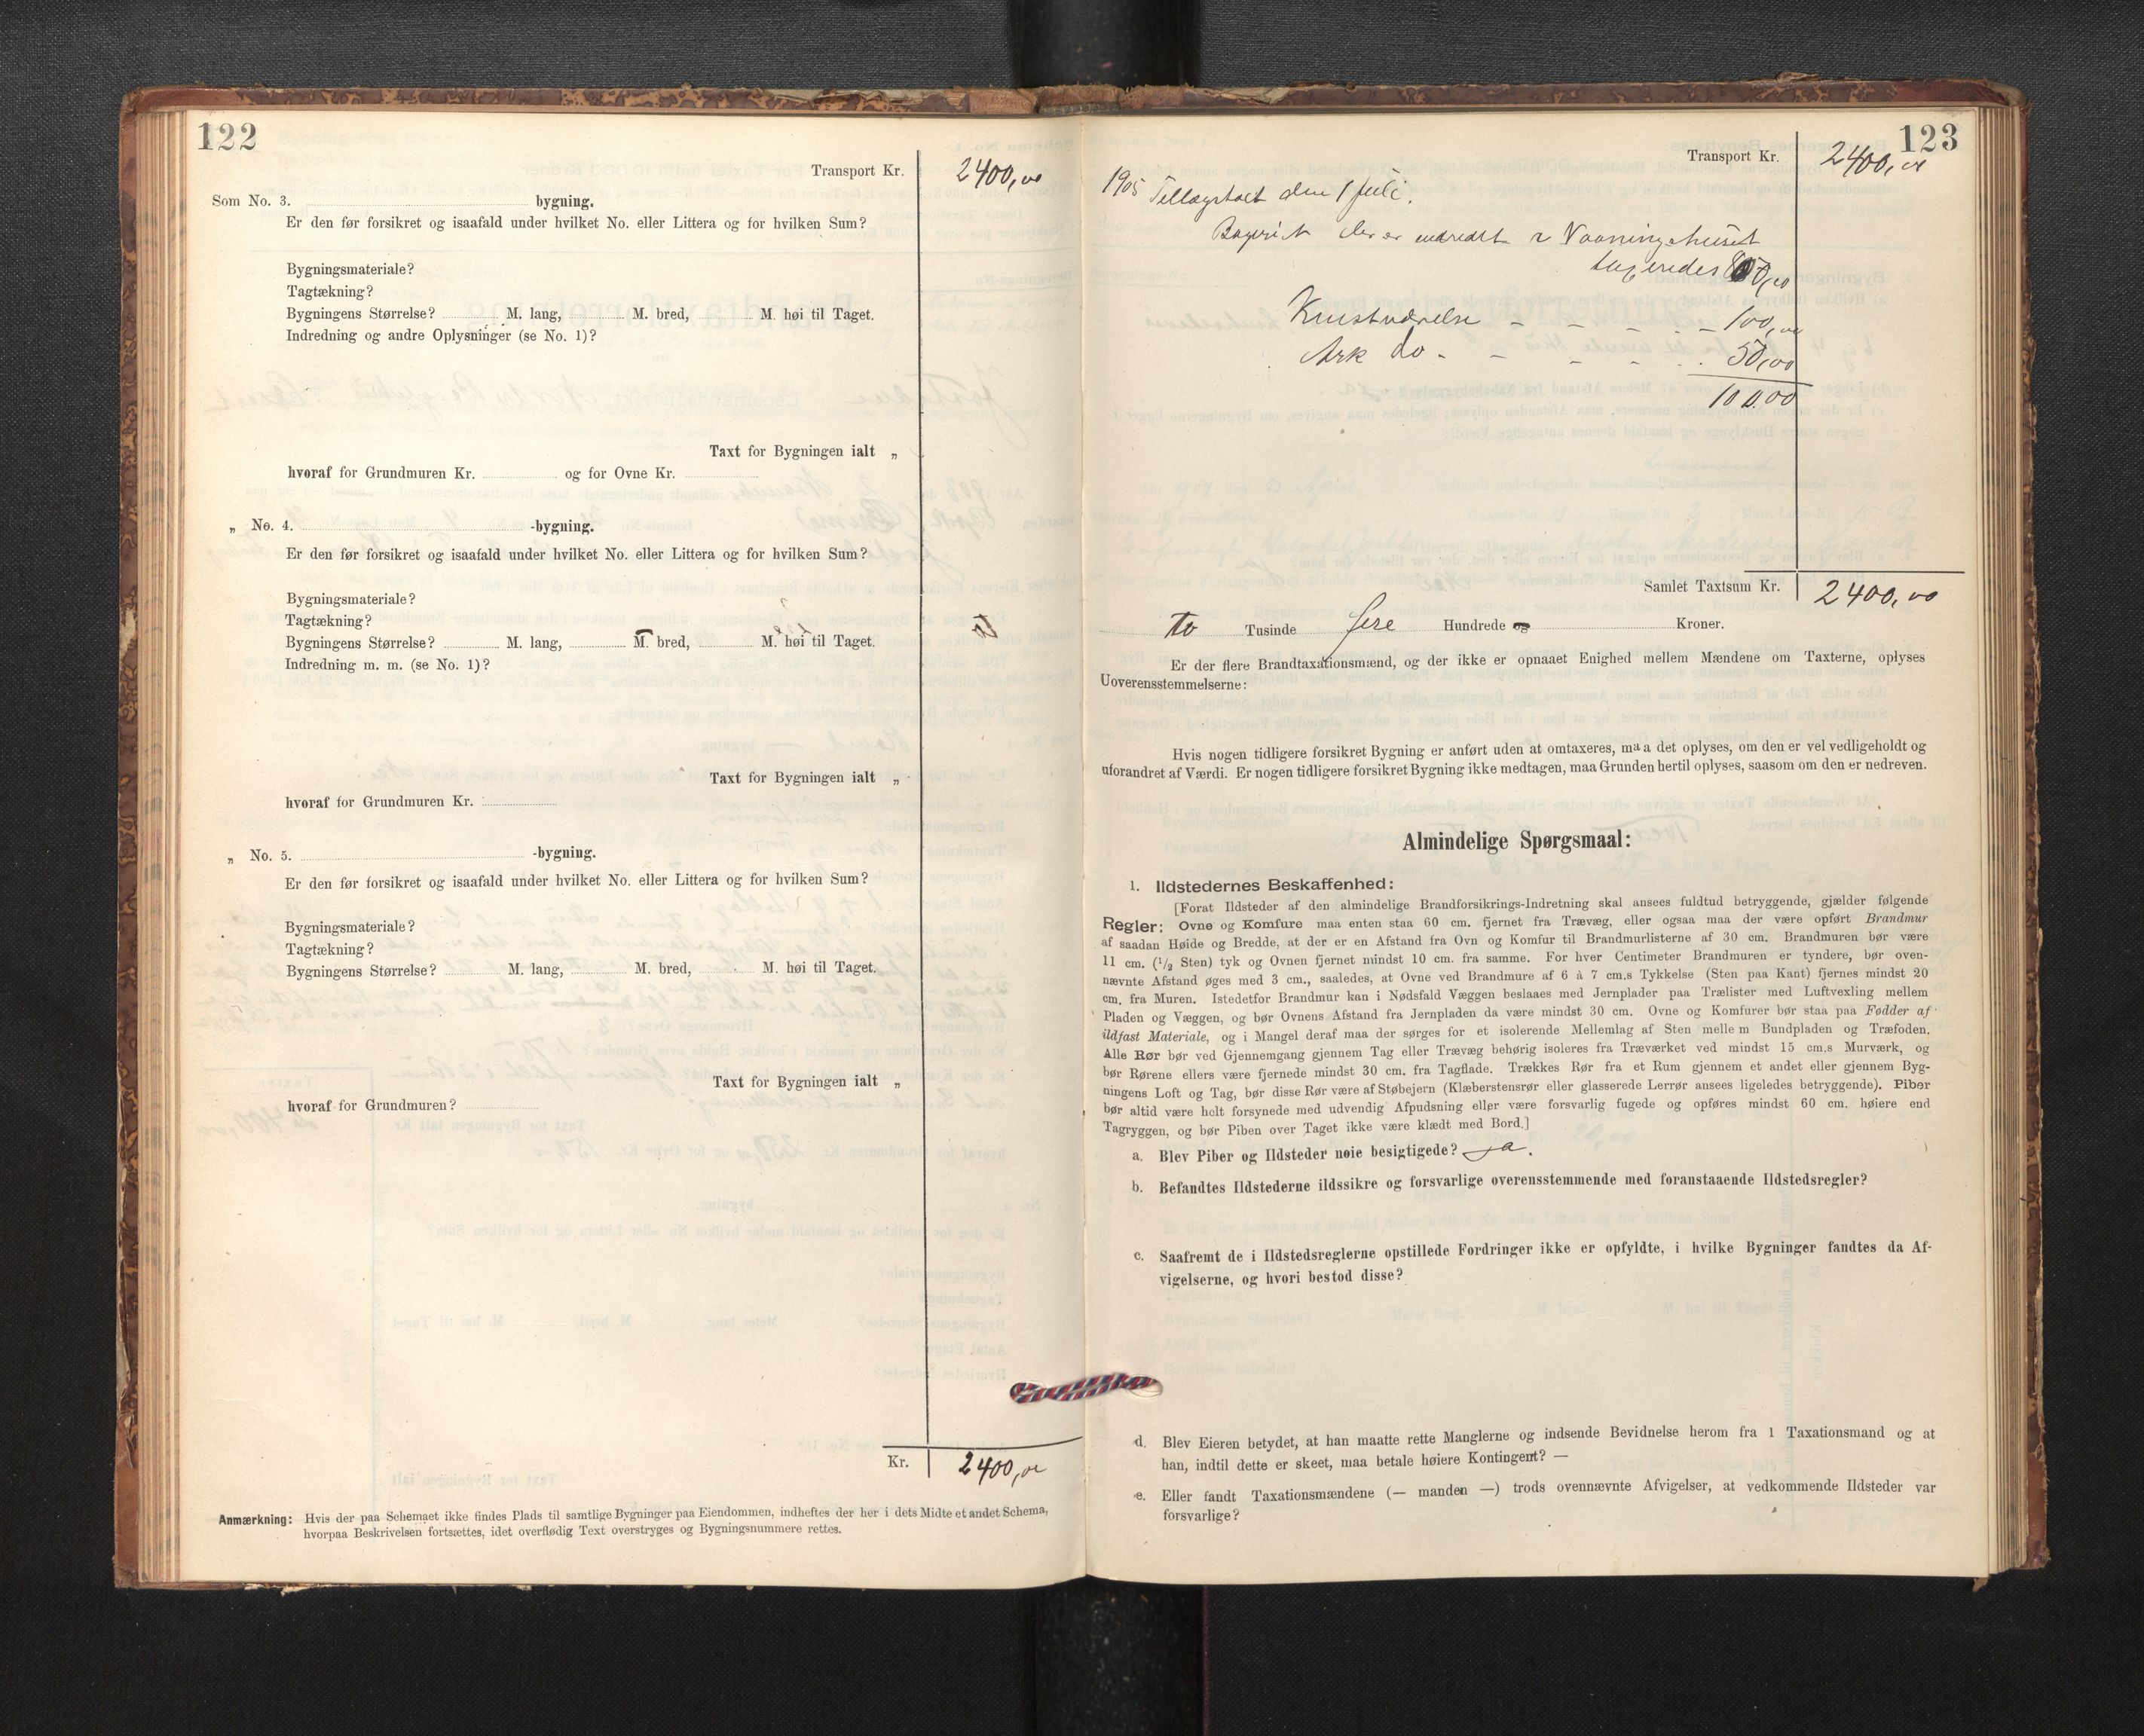 122
Transport Kr. 2400,00
Som No. 3. bygning.
Er den før forsikret og isaafald under hvilket No. eller Littera og for hvilken Sum?
Bygningsmateriale?
Tagtækning?
Bygningens Størrelse? M. lang, M. bred, M. høi til Taget.
Indredning og andre Oplysninger (se No. 1)?
Taxt for Bygningen ialt „
hvoraf for Grundmuren Kr. og for Ovne Kr.
„ No. 4. -bygning.
Er den før forsikret og isaafald under hvilket No. eller Littera og for hvilken Sum?
Bygningsmateriale?
Tagtækning?
Bygningens Størrelse? M. lang, M. bred, M. høi til Taget.
Indredning m. m. (se No. 1)?
Taxt for Bygningen ialt „
hvoraf for Grundmuren Kr.
„ No. 5. -bygning.
Er den før forsikret og isaafald under hvilket No. eller Littera og for hvilken Sum?
Bygningsmateriale?
Tagtækning?
Bygningens Størrelse? M. lang, M. bred, M. høi til Taget.
Taxt for Bygningen ialt „
hvoraf for Grundmuren?
Kr. 2400,00
Anmærkning: Hvis der paa Schemaet ikke findes Plads til samtlige Bygninger paa Eiendommen, indheftes der her i dets Midte et andet Schema,
hvorpaa Beskrivelsen fortsættes, idet overflødig Text overstryges og Bygningsnummere rettes.
123
Transport Kr. 2400,00
1905 Tillægstaxt den 1 Juli.
Bageriet der er indredet i Vaaningshuset
taxeredes
Kvistværelse - - - - 100,00
Ark do - - - - 50,00
Samlet Taxtsum Kr. 2400,00
to Tusinde fire Hundrede og Kroner.
Er der flere Brandtaxationsmænd, og der ikke er opnaaet Enighed mellem Mændene om Taxterne, oplyses
Uoverensstemmelserne:
Hvis nogen tidligere forsikret Bygning er anført uden at omtaxeres, maa det oplyses, om den er vel vedligeholdt og
uforandret af Værdi. Er nogen tidligere forsikret Bygning ikke medtagen, maa Grunden hertil oplyses, saasom om den er nedreven.
Almindelige Spørgsmaal:
1. Ildstedernes Beskaffenhed:
[Forat Ildsteder af den almindelige Brandforsikrings-Indretning skal ansees fuldtud betryggende, gjælder følgende
Regler: Ovne og Komfure maa enten staa 60 cm. fjernet fra Trævæg, eller ogsaa maa der være opført Brandmur
af saadan Høide og Bredde, at der er en Afstand fra Ovn og Komfur til Brandmurlisterne af 30 cm. Brandmuren bør være
11 cm. (1/2 Sten) tyk og Ovnen fjernet mindst 10 cm. fra samme. For hver Centimeter Brandmuren er tyndere, bør oven-
nævnte Afstand øges med 3 cm., saaledes, at Ovne ved Brandmure af 6 à 7 cm.s Tykkelse (Sten paa Kant) fjernes mindst 20
cm. fra Muren. Istedetfor Brandmur kan i Nødsfald Væggen beslaaes med Jernplader paa Trælister med Luftvexling mellem
Pladen og Væggen, og bør Ovnens Afstand fra Jernpladen da være mindst 30 cm. Ovne og Komfurer bør staa paa Fødder af
ildfast Materiale, og i Mangel deraf maa der sørges for et isolerende Mellemlag af Sten mellem Bundpladen og Træfoden.
Alle Rør bør ved Gjennemgang gjennem Tag eller Trævæg behørig isoleres fra Træværket ved mindst 15 cm.s Murværk, og
bør Rørene ellers være fjernede mindst 30 cm. fra Tagflade. Trækkes Rør fra et Rum gjennem et andet eller gjennem Byg-
ningens Loft og Tag, bør disse Rør være af Støbejern (Klæberstensrør eller glasserede Lerrør ansees ligeledes betryggende). Piber
bør altid være helt forsynede med udvendig Afpudsning eller være forsvarlig fugede og opføres mindst 60 cm. høiere end
Tagryggen, og bør Piben over Taget ikke være klædt med Bord.]
a. Blev Piber og Ildsteder nøie besigtigede? Ja.
b. Befandtes Ildstederne ildssikre og forsvarlige overensstemmende med foranstaaende Ildstedsregler?
c. Saafremt de i Ildstedsreglerne opstillede Fordringer ikke er opfyldte, i hvilke Bygninger fandtes da Af-
vigelserne, og hvori bestod disse?
d. Blev Eieren betydet, at han maatte rette Manglerne og indsende Bevidnelse herom fra 1 Taxationsmand og at
han, indtil dette er skeet, maa betale høiere Kontingent? —
e. Eller fandt Taxationsmændene (— manden —) trods ovennævnte Afvigelser, at vedkommende Ildsteder var
forsvarlige?